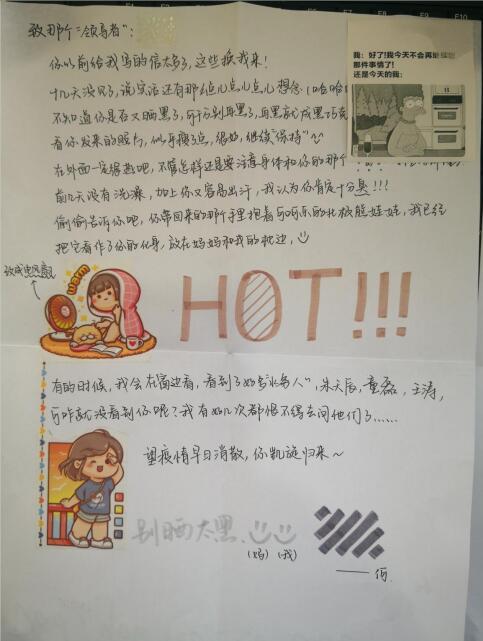 致那个“领导者”：
你以前给我写的信太多了，这些换我来！
十几天没见了，说实话还有那么点儿点儿点儿想念（哈哈
不知道你是否又晒黑了，可千万别再黑了，再黑就成黑巧克
看你发来的照片，似乎瘦了点，很好，继续“保持”～
在外面一定很热吧，不管怎样还是要注意身体和你的那个
前几天没有洗澡，加上你又容易出汗，我认为你肯定十分臭！！！
偷偷告诉你吧，你带回来的那个手里抱着可可乐的北极熊娃娃，我已经
把它看作了你的化身，放在妈妈和我的枕边，
我：好了!我今天不会再
那件事情了!
还是今天的我:
改成电风扇
warm
HOT!!!
有的时候，我会在窗边看，看到了好多“水务人”，朱天辰，童磊，王涛，
可咋就没看到你呢？我有好几次都恨不得去问他们了……
望疫情早日消散，你凯旋归来～
别晒太黑、
(妈) (我)